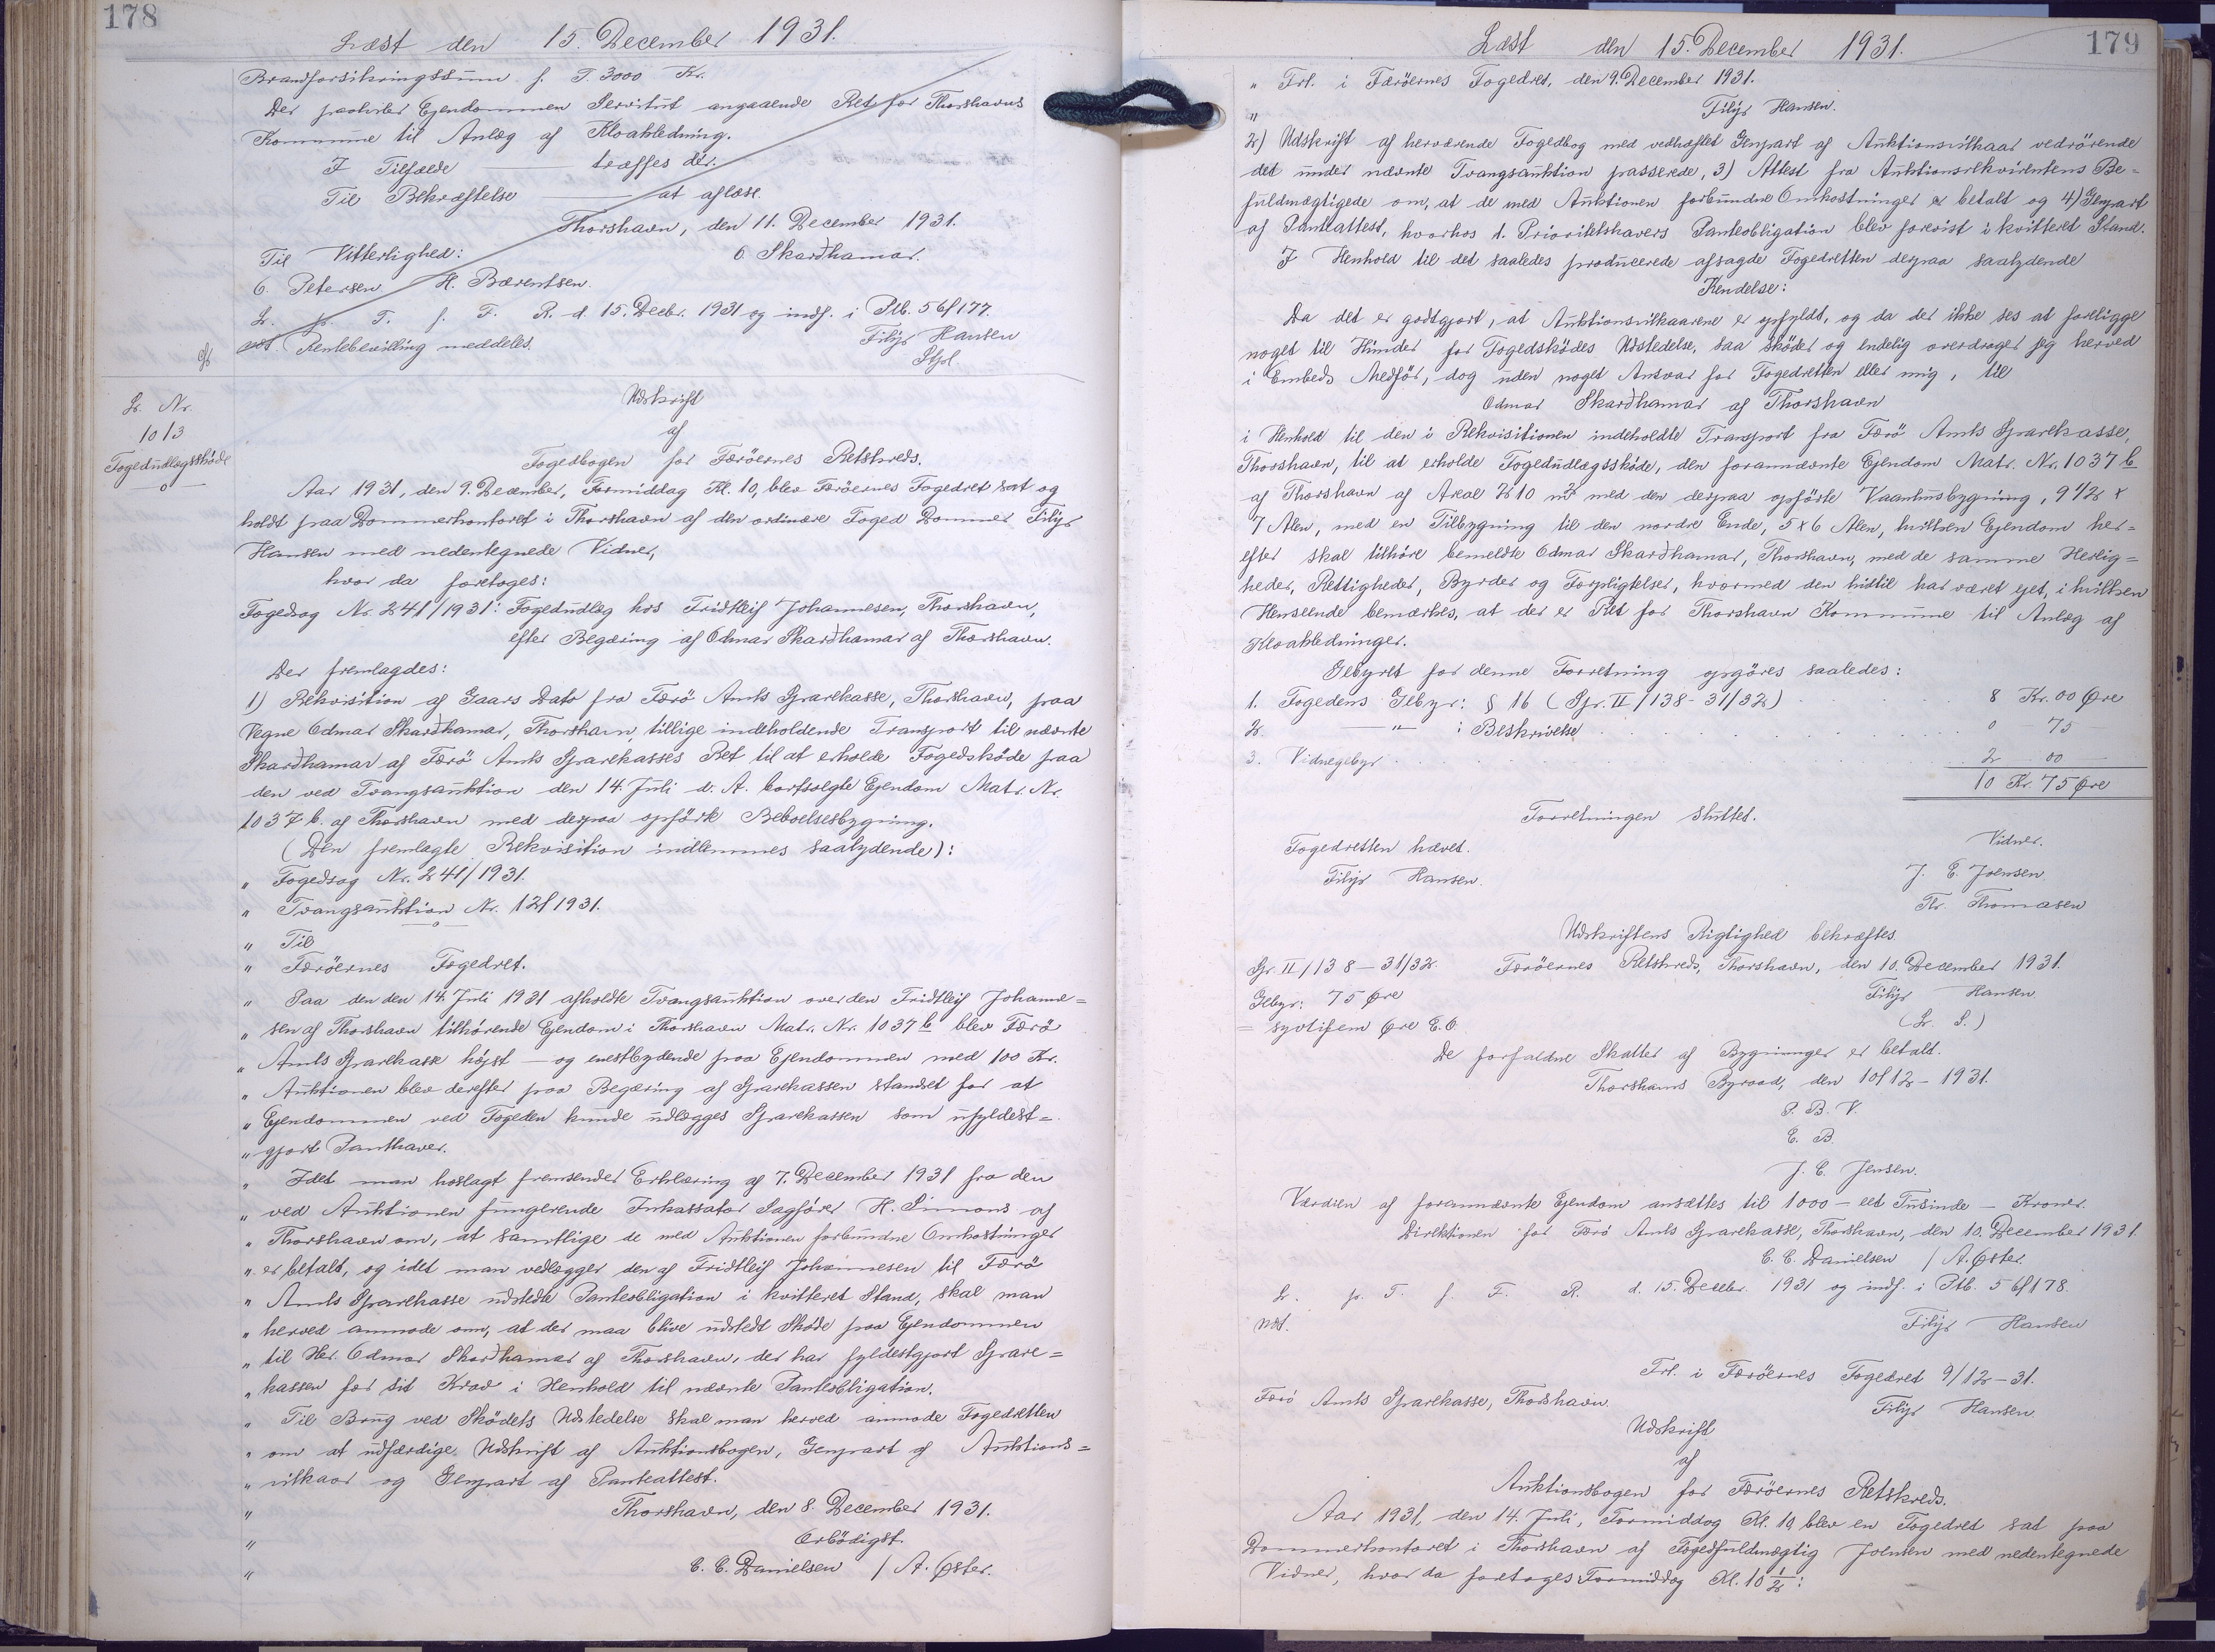 178
Læst den 15. December 1931.
Brandforsikringssum f. T. 3000 Kr.
Der paahviler Ejendommen Servitut angaaende Ret for Thorshavns
Kommune til Anlæg af Kloakledning.
I Tilfælde ——— træffes der.
Til Bekræftelse ——— at aflæse.
Thorshavn, den 11. December 1931.
Til Vitterlighed: O. Skarðhamar.
C. Petersen H. Bærentsen.
L. p. T. f. F. R. d. 15. Decbr. 1931 og indf. i Ptb. 5 6/177.
Rentebevilling meddeles. Filip Hansen
Lr. Nr.
1013
Fogedudlægsskøde
Udskrift
af
Fogedbogen for Færöernes Retskreds.
Aar 1931, den 9. December, Formiddag Kl. 10, blev Færöernes Fogedret sat og
holdt paa Dommerkontoret i Thorshavn af den ordinære Foged Dommer Filip
Hansen med nedentegnede Vidner,
hvor da foretoges:
Fogedsag Nr. 241/1931: Fogedudlæg hos Fridtleif Johannesen, Thorshavn,
efter Begæring af Odmar Skarðhamar af Thorshavn.
Der fremlagdes:
1) Rekvisition af Gaars Dato fra Færö Amts Sparekasse, Thorshavn, paa
Vegne Odmar Skarðhamar, Thorshavn, tillige indeholdende Transport til nævnte
Skarðhamar af Færö Amts Sparekasses Ret til at erholde Fogedskøde paa
den ved Tvangsauktion den 14. Juli d. A. bortsolgte Ejendom Matr. Nr.
1037 b. af Thorshavn med derpaa opført Beboelsesbygning.
(Den fremlagte Rekvisition indlemmes saalydende):
" Fogedsag Nr. 241/1931.
" Tvangsauktion Nr. 12/1931.
" Til
" Færöernes Fogedret.
" Paa den den 14. Juli 1931 afholdte Tvangsauktion over den Fridtleif Johanne=
" sen af Thorshavn tilhørende Ejendom i Thorshavn Matr. Nr. 1037 b blev Færö
" Amts Sparekasse højst- og enestbydende paa Ejendommen med 100 Kr.
" Auktionen blev derefter paa Begæring af Sparekassen standset for at
" Ejendommen ved Fogeden kunde udlægges Sparekassen som ufyldest=
" gjort Panthaver.
" Idet man hoslagt fremsender Erklæring af 7. December 1931 fra den
" ved Auktionen fungerende Inkassator Sagfører H. Simons af
" Thorshavn om, at samtlige de med Auktionen forbundne Omkostninger
" er betalt, og idet man vedlægger den af Fridtleif Johannesen til Færö
" Amts Sparekasse udstedte Panteobligation i kvitteret Stand, skal man
" herved anmode om, at der maa blive udstedt Skøde paa Ejendommen
" til Her. Odmar Skarðhamar af Thorshavn, der har fyldestgjort Spare=
" kassen for sit Krav i Henhold til nævnte Panteobligation.
" Til Brug ved Skødets Udstedelse skal man herved anmode Fogedretten
" om at udfærdige Udskrift af Auktionsbogen, Genpart af Auktions=
" vilkaar og Genpart af Panteattest.
" Thorshavn, den 8. December 1931.
" Ærbödigst.
" C. C. Danielsen / A. Øster.
179
Læst den 15. December 1931.
" Frl. i Færöernes Fogedret, den 9. December 1931.
" Filip Hansen.
2) Udskrift af herværende Fogedbog med vedhæftet Genpart af Auktionsvilkaar vedrørende
det under nævnte Tvangsauktion passerede, 3) Attest fra Auktionsrekvirentens Be=
fuldmægtigede om, at de med Auktionen forbundne Omkostninger er betalt og 4) Genpart
af Panteattest, hvorhos 1. Prioritetshavers Panteobligation blev forevist i kvitteret Stand.
I Henhold til det saaledes producerede afsagde Fogedretten derpaa saalydende
Kendelse:
Da det er godtgjort, at Auktionsvilkaarene er opfyldt, og da der ikke ses at foreligge
noget til Hinder for Fogedskødes Udstedelse, saa skøder og endelig overdrager jeg herved
i Embeds Medfør, dog uden noget Ansvar for Fogedretten eller mig, til
Odmar Skarðhamar af Thorshavn
i Henhold til den i Rekvisitionen indeholdte Transport fra Færö Amts Sparekasse,
Thorshavn, til at erholde Fogedudlægsskøde, den forannævnte Ejendom Matr. Nr. 1037 b
af Thorshavn af Areal 210 m² med den derpaa opførte Vaanhusbygning, 9 1/2 x
7 Alen, med en Tilbygning til den nordre Ende, 5 x 6 Alen, hvilken Ejendom her=
efter skal tilhøre bemeldte Odmar Skarðhamar, Thorshavn, med de samme Herlig=
heder, Rettigheder, Byrder og Forpligtelser, hvormed den hidtil har været ejet, i hvilken
Henseende bemærkes, at der er Ret for Thorshavn Kommune til Anlæg af
Kloakledninger.
Gebyret for denne Forretning opgøres saaledes:
1. Fogedens Gebyr: § 16 (Gr. II/138-31/32) . . . 8 Kr. 00 Øre
2. —"— : Beskrivelse . . . 0 - 75 -
3. Vidnegebyr . . . 2 - 00 -
10 Kr. 75 Øre
Forretningen sluttet.
Fogedretten hævet. Vidner.
Filip Hansen. J. E. Joensen.
Th. Thomasen
Udskriftens Rigtighed bekræftes.
Gr. II/138-31/32. Færöernes Retskreds, Thorshavn, den 10. December 1931.
Gebyr: 75 Øre Filip Hansen.
= syvtifem Øre E.O. (L. S.)
De forfaldne Skatter af Bygninger er betalt.
Thorshavns Byraad, den 10/12-1931.
P. B. V.
E. B.
J. C. Jensen.
Værdien af forannævnte Ejendom ansættes til 1000 - eet Tusinde - Kroner.
Direktionen for Færö Amts Sparekasse, Thorshavn, den 10. December 1931.
C. C. Danielsen / A. Øster.
L. p. T. f. F. R. d. 15. Decbr. 1931 og indf. i Ptb. 5 6/178.
Filip Hansen
Frl. i Færöernes Fogedret 9/12-31.
Færö Amts Sparekasse, Thorshavn. Filip Hansen.
Udskrift
af
Auktionsbogen for Færöernes Retskreds.
Aar 1931, den 14. Juli, Formiddag Kl. 10, blev en Fogedret sat paa
Dommerkontoret i Thorshavn af Fogedfuldmægtig Joensen med nedentegnede
Vidner, hvor da foretoges Formiddag Kl. 10 1/2: